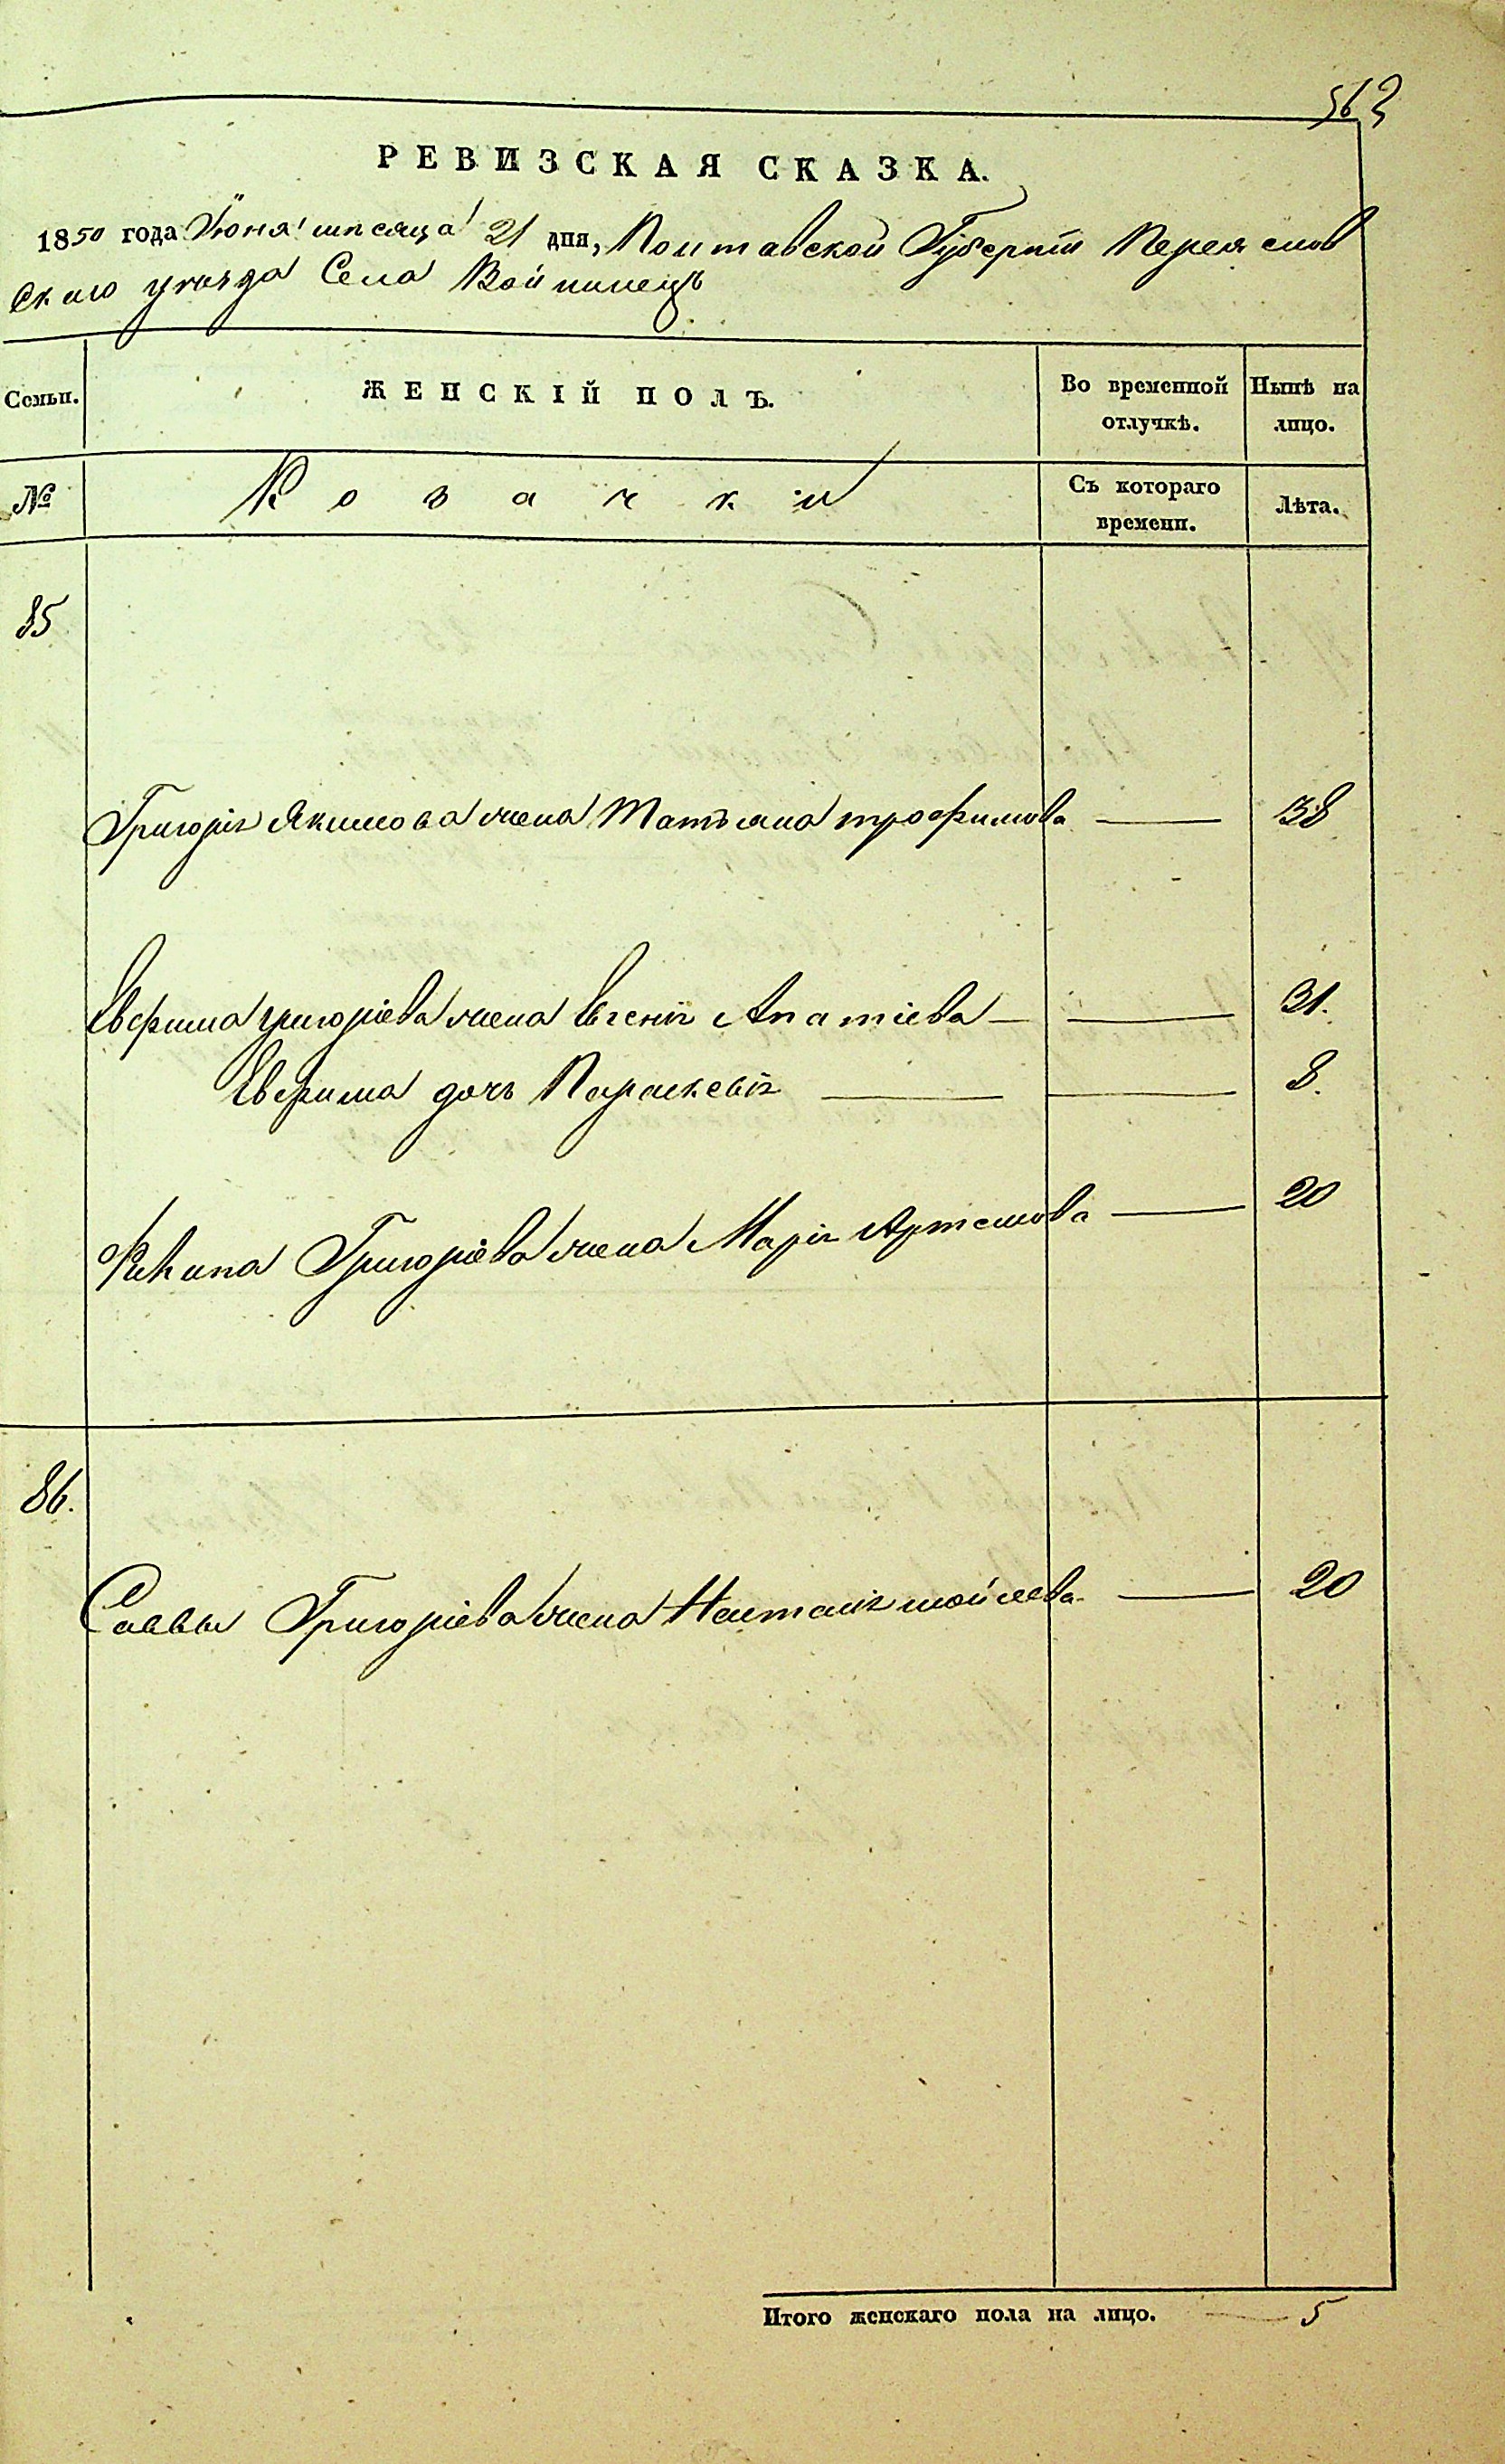 562
РЕВИЗСКАЯ СКАЗКА.
1850 года Іюня мѣсяца 21 дня, Полтавской Губерніи Переяслов
Скаго уѣзда Села Войтовецъ
Семьи.
ЖЕНСКІЙ ПОЛЪ.
Во временной
отлучкѣ.
Нынѣ на
лицо.
№
Козачки
Съ котораго
времени.
Лѣта.
85
Григорія Якимова жена Татьяна трофимова 38
Евфима григоріева жена Евгенія Апатіева 31.
Евфима дочь Параскевія 8.
Григоріева жена Марія Артемова 20
86.
Саввы Григоріева жена Наталія мойсеева 20
Итого женскаго пола на лицо. 5